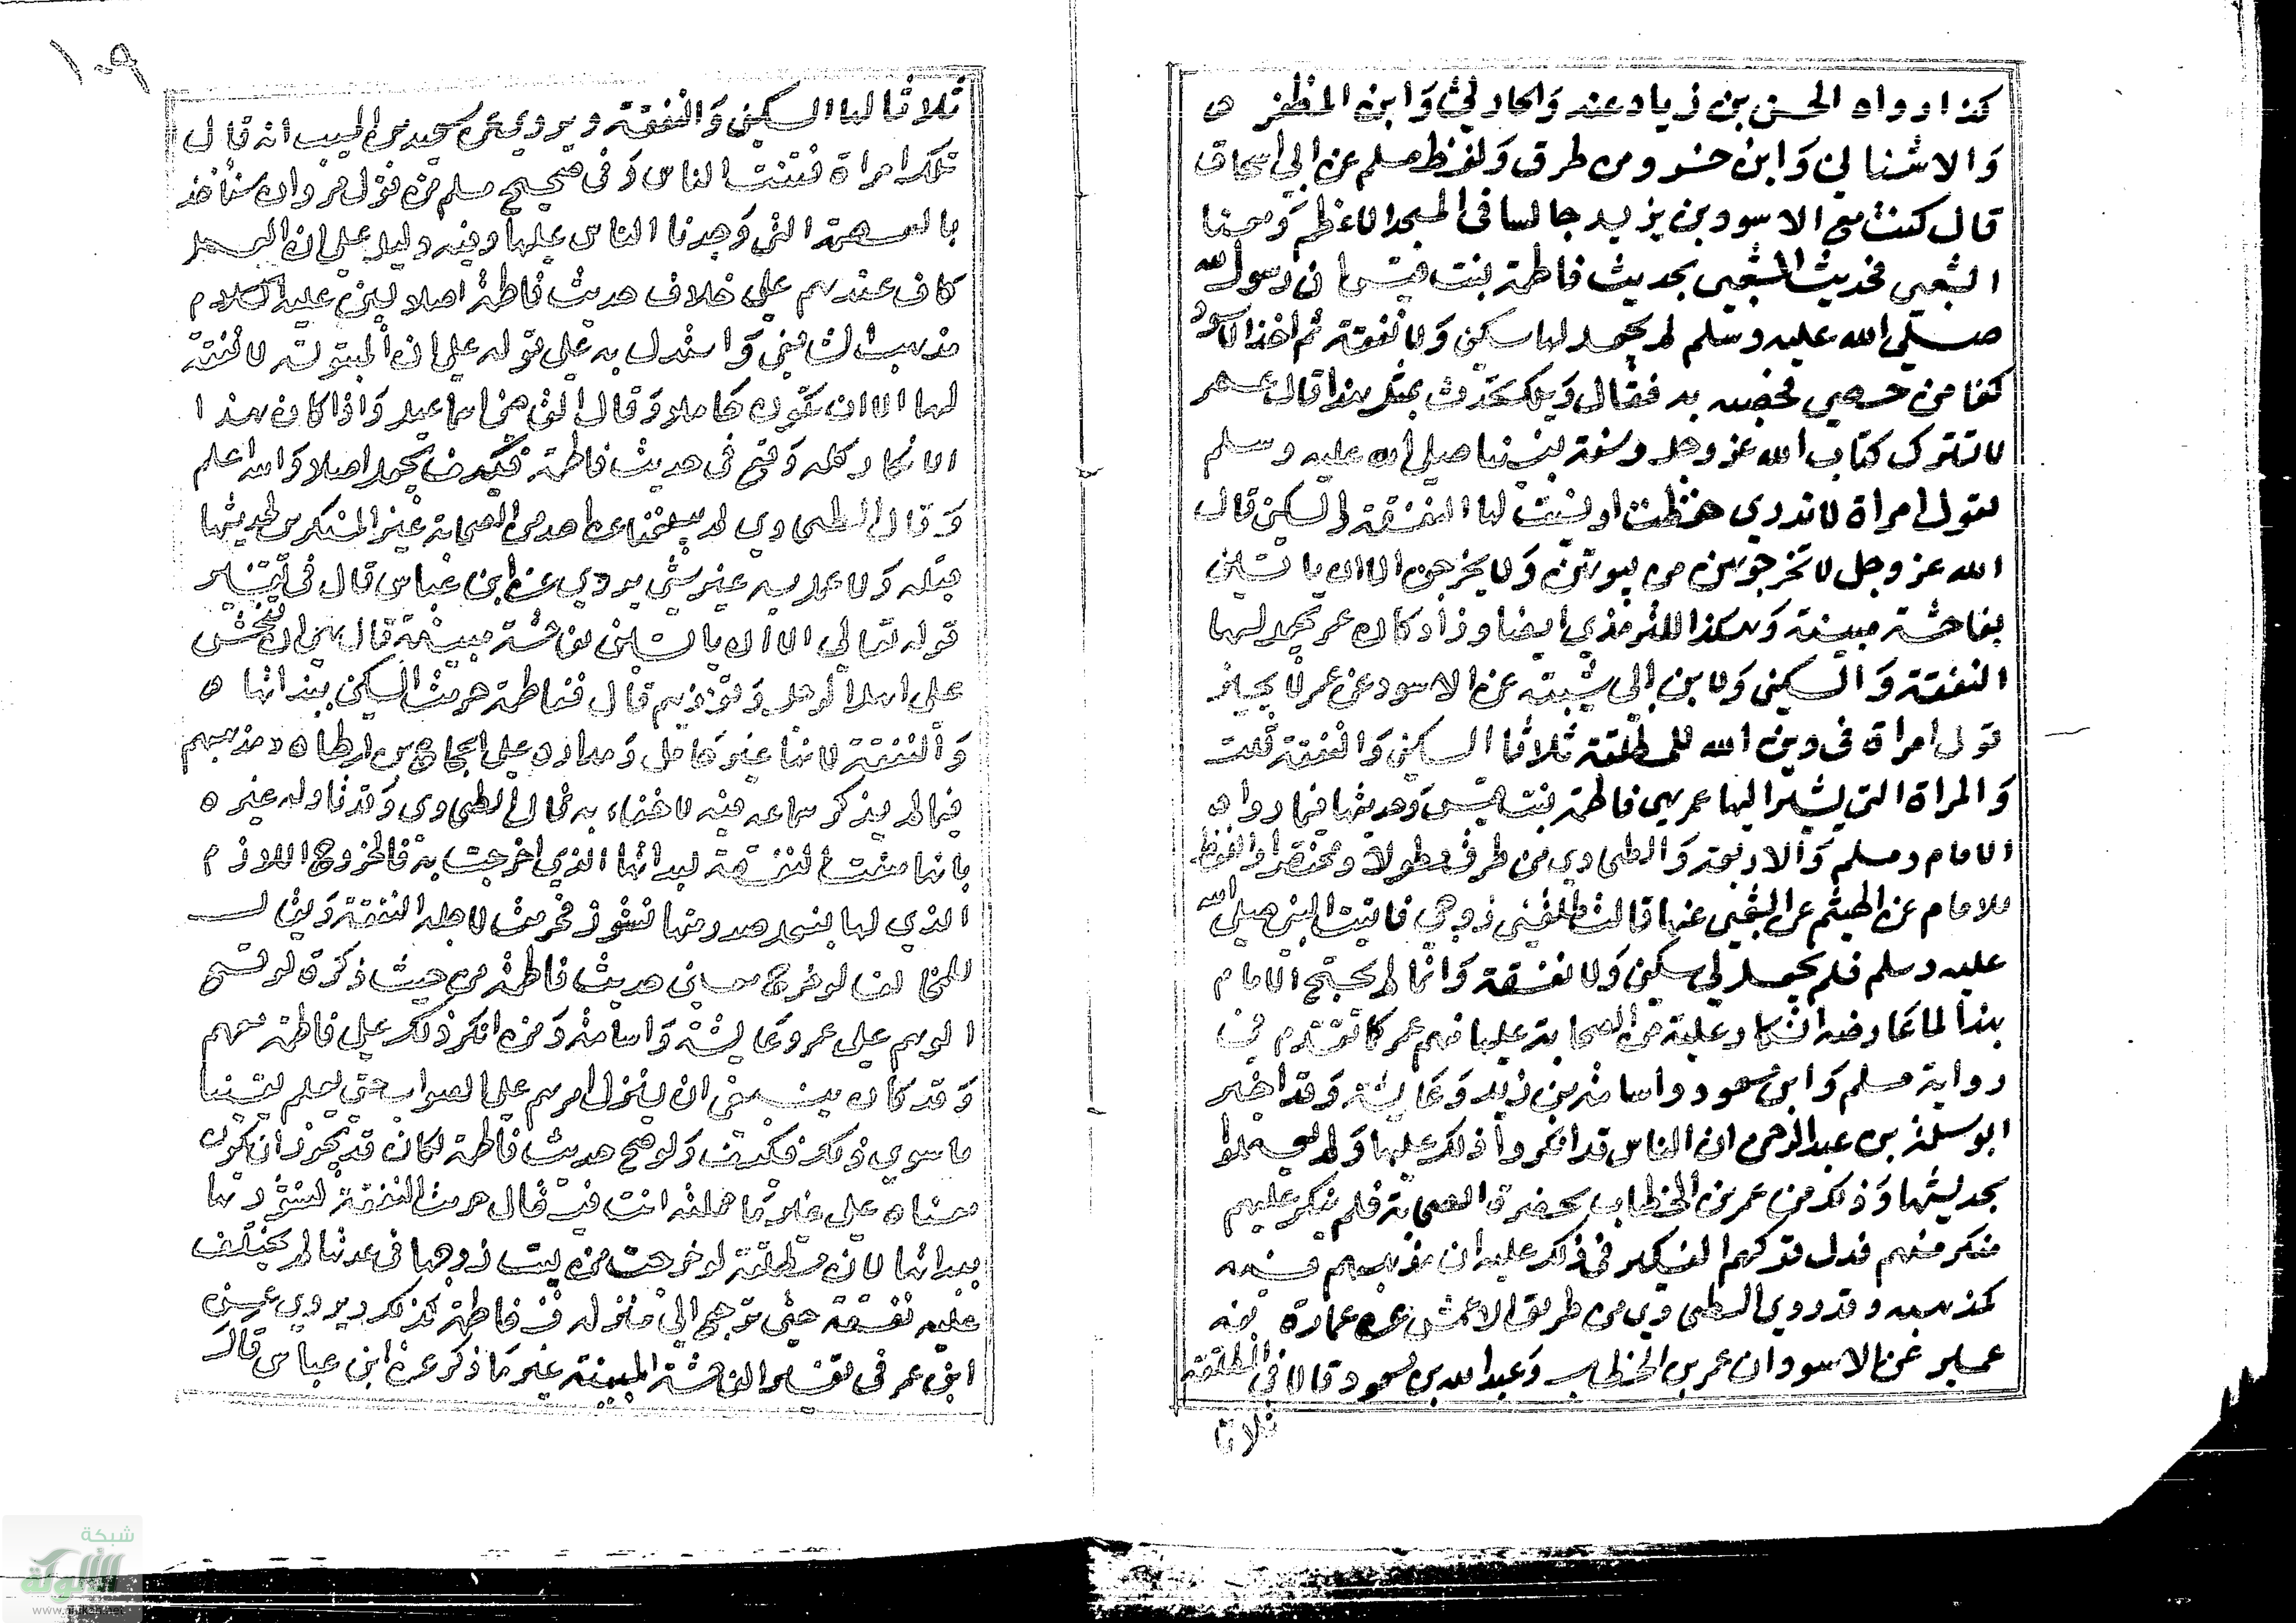 كذا رواه الحسن بن زياد عنه والحارثي وابن المظفر ه
والاشناني وابن خسرو من طرق ولفظ مسلم عن ابي اسحاق
قال كنت مع الاسود بن يزيد جالسا في المسجد الاعظم ومعنا
الشعبي فحدث الشعبي بحديث فاطمة بنت قيس ان رسول الله
صلى الله عليه وسلم لم يجعل لها سكنى ولا نفقة ثم اخذ الاسود
كفا من حصى فحصبه به فقال ويلك تحدث بمثل هذا قال عمر
لا نترك كتاب الله عز وجل وسنة نبينا صلى الله عليه وسلم
لقول امراة لا ندري حفظت او نسيت لها النفقة والسكنى قال
الله عز وجل لا تخرجوهن من بيوتهن ولا يخرجن الا ان ياتين
بفاحشة مبينة وهكذا للترمذي ايضا وزاد كان عمر يجعل لها
النفقة والسكنى ولابن ابي شيبة عن الاسود عن عمر لا يجيز
قول امراة في دين الله للمطلقة ثلاثا السكنى والنفقة قلت
والمراة التي يشير اليها عمر هي فاطمة بنت قيس وحديثها فيما رواه
الامام ومسلم والاربعة والطحاوي من طرق مطولا ومختصرا ولفظ
للامام عن الهيثم عن الشعبي عنها قالت طلقني زوجي فاتيت النبي صلى الله
عليه وسلم فلم يجعل لي سكنى ولا نفقة وانما لم يحتج الامام
بهذا لما عارضه انكار علية من الصحابة عليها منهم عمر كما تقدم في
رواية مسلم وابن مسعود واسامة بن زيد وعايشة وقد اخبر
ابو سلمة بن عبد الرحمن ان الناس قد انكروا ذلك عليها ولم يعملوا
بحديثها وذلك من عمر بن الخطاب بحضرة الصحابة فلم ينكر عليهم
منكر منهم فدل تركهم النكير في ذلك عليه ان مذهبهم فيه
كمذهبه وقد روي الطحاوي من طريق الاعمش عن عمارة بن
عمير عن الاسود ان عمر بن الخطاب وعبد الله بن مسعود قالا في المطلقة
ثلاثا
١٠٩
ثلاثا لها السكنى والنفقة ويروي عن سعيد بن المسيب انه قال
تلك امراة فتنت الناس وفي صحيح مسلم من قول مروان سناخذ
بالعصمة التي وجدنا الناس عليها وفيه دليل على ان العمل
كان عندهم على خلاف حديث فاطمة اصلا ليس عليه الكلام
مذهب الشافعي واستدل به على قوله على ان المبتوتة لا نفقة
لها الا ان تكون حاملا وقال القاضي اسماعيل واذا كان هذا
الانكار كله وقع في حديث فاطمة فكيف يجعل اصلا والله اعلم
وقال الطحاوي لم يبلغنا عن احد من الصحابة غير المنكرين لحديثها
قبله ولا عمل به غير شي يروي عن ابن عباس قال في تفسير
قوله تعالى الا ان ياتين بفاحشة مبينة قال هي ان تفحش
على اهل الرجل وتؤذيهم قال ففاطمة حرمت السكنى ببذائها ه
والنفقة لانها غير حامل ومداره على الحجاج بن ارطاه ومذهبهم
فيما لم يذكر سماعه فيه لا خفاء به قال الطحاوي وقد تاوله غيره
بانها منعت النفقة لبذائها الذي اخرجت به فالخروج اللازم
الذي لها بفعل صدر منها نشوز فحرمت لاجله النفقة ويقال
للمخالف لو خرج معنى حديث فاطمة من حيث ذكرة لوقع
الوهم على عمر وعايشة واسامة ومن انكر ذلك على فاطمة معهم
وقد كان ينبغي ان ينزل امرهم على الصواب حتى يعلم يقينا
ما سوي ذلك فكيف ولو صح حديث فاطمة لكان قد يجوز ان يكون
معناه على غير ما حملته انت فيقال حرمت النفقة لنشوزها
ببذائها لان مطلقة لو خرجت من بيت زوجها في عدتها لم يجب لها
عليه نفقة حتى ترجع الى منزله ففاطمة كذلك ويروي عن
ابن عمر في تفسير الفاحشة المبينة غير ما ذكر عن ابن عباس قال
شبكة
الألوكة
www.alukah.net